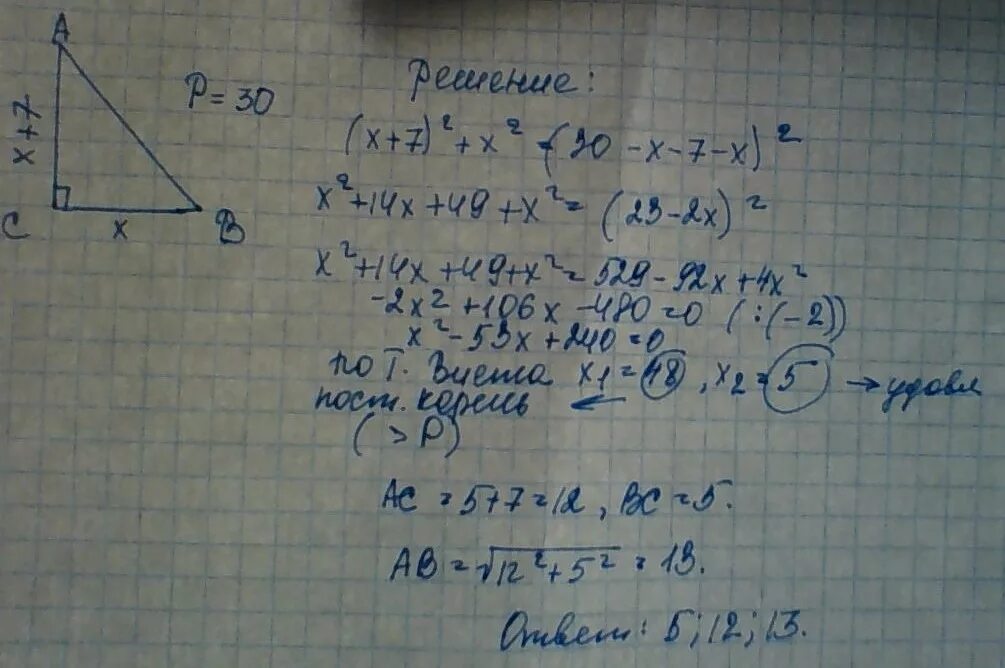 A
P = 30
x+7
C
x
B
Решение:
(x+7)² + x² = (30 - x - 7 - x)²
x² + 14x + 49 + x² = (23 - 2x)²
x² + 14x + 49 + x² = 529 - 92x + 4x²
-2x² + 106x - 480 = 0 (:(-2))
x² - 53x + 240 = 0
по Т. Виета x₁ = 48, x₂ = 5 → удовл
пост. корень ←
(> P)
AC = 5+7 = 12, BC = 5.
AB = √12² + 5² = 13.
Ответ: 5; 12; 13.